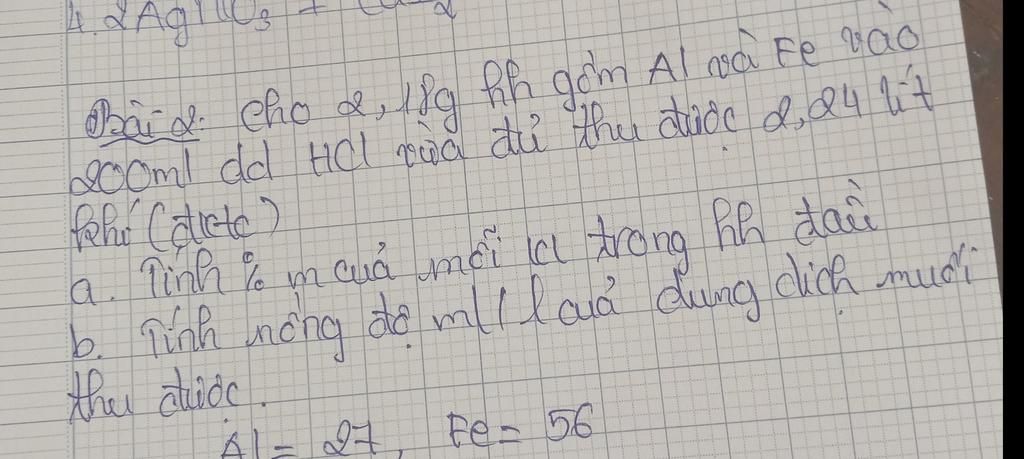 4. 2AgNO3 +
Bài 2: Cho 2,18g hh gồm Al và Fe vào
200ml dd HCl vừa đủ thu được 2,24 lít
khí (đktc)
a. Tính % m của mỗi kl trong hh đầu
b. Tính nồng độ mol/l của dung dịch muối
thu được.
Al = 27, Fe = 56